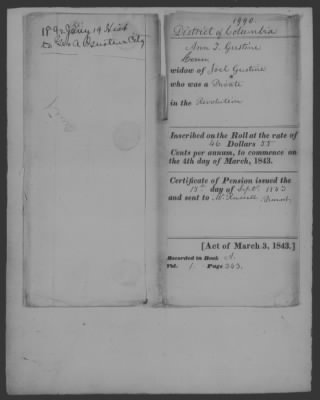 1990.
District of Columbia
Ann T. Gustine
widow of Joel Gustine
who was a Private
in the Revolution
Inscribed on the Roll at the rate of
46 Dollars 55
Cents per annum, to commence on
the 4th day of March, 1843.
Certificate of Pension issued the
18th day of Sept. 1843
and sent to
[Act of March 3, 1843.]
Recorded in Book A.
Vol. 1. Page 363.
Hist
to Geo A City